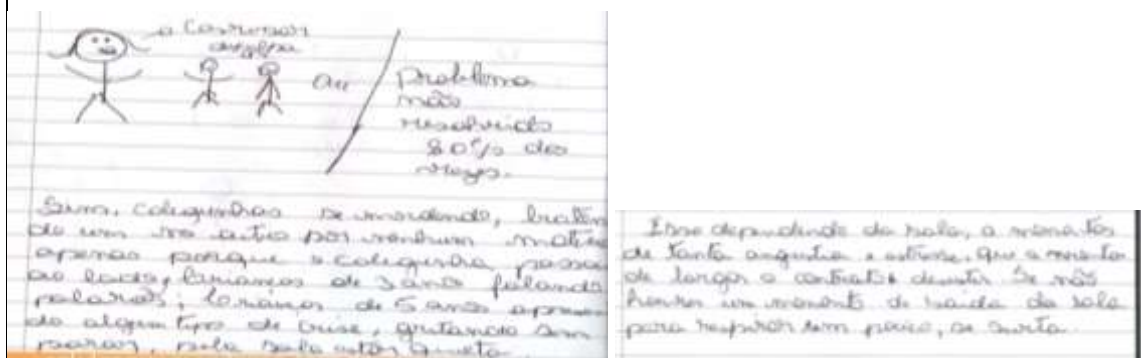 a conversar
ou
Problema
não
resolvido
80% das
vezes.
Sim, coleguinhas se mordendo, baten
do um no outro por nenhum motivo
apenas porque o coleguinha passou
ao lado, crianças de 3 anos falando
palavrão, crianças de 5 anos apresen
do algum tipo de crise, gritando sem
parar, pela sala estar quieta.
Isso dependendo da sala, a momentos
de tanta angustia e estresse, que a vontade
de largar o contrato e desistir. Se não
houver um momento de saída da sala
para respirar um pouco, se surta.